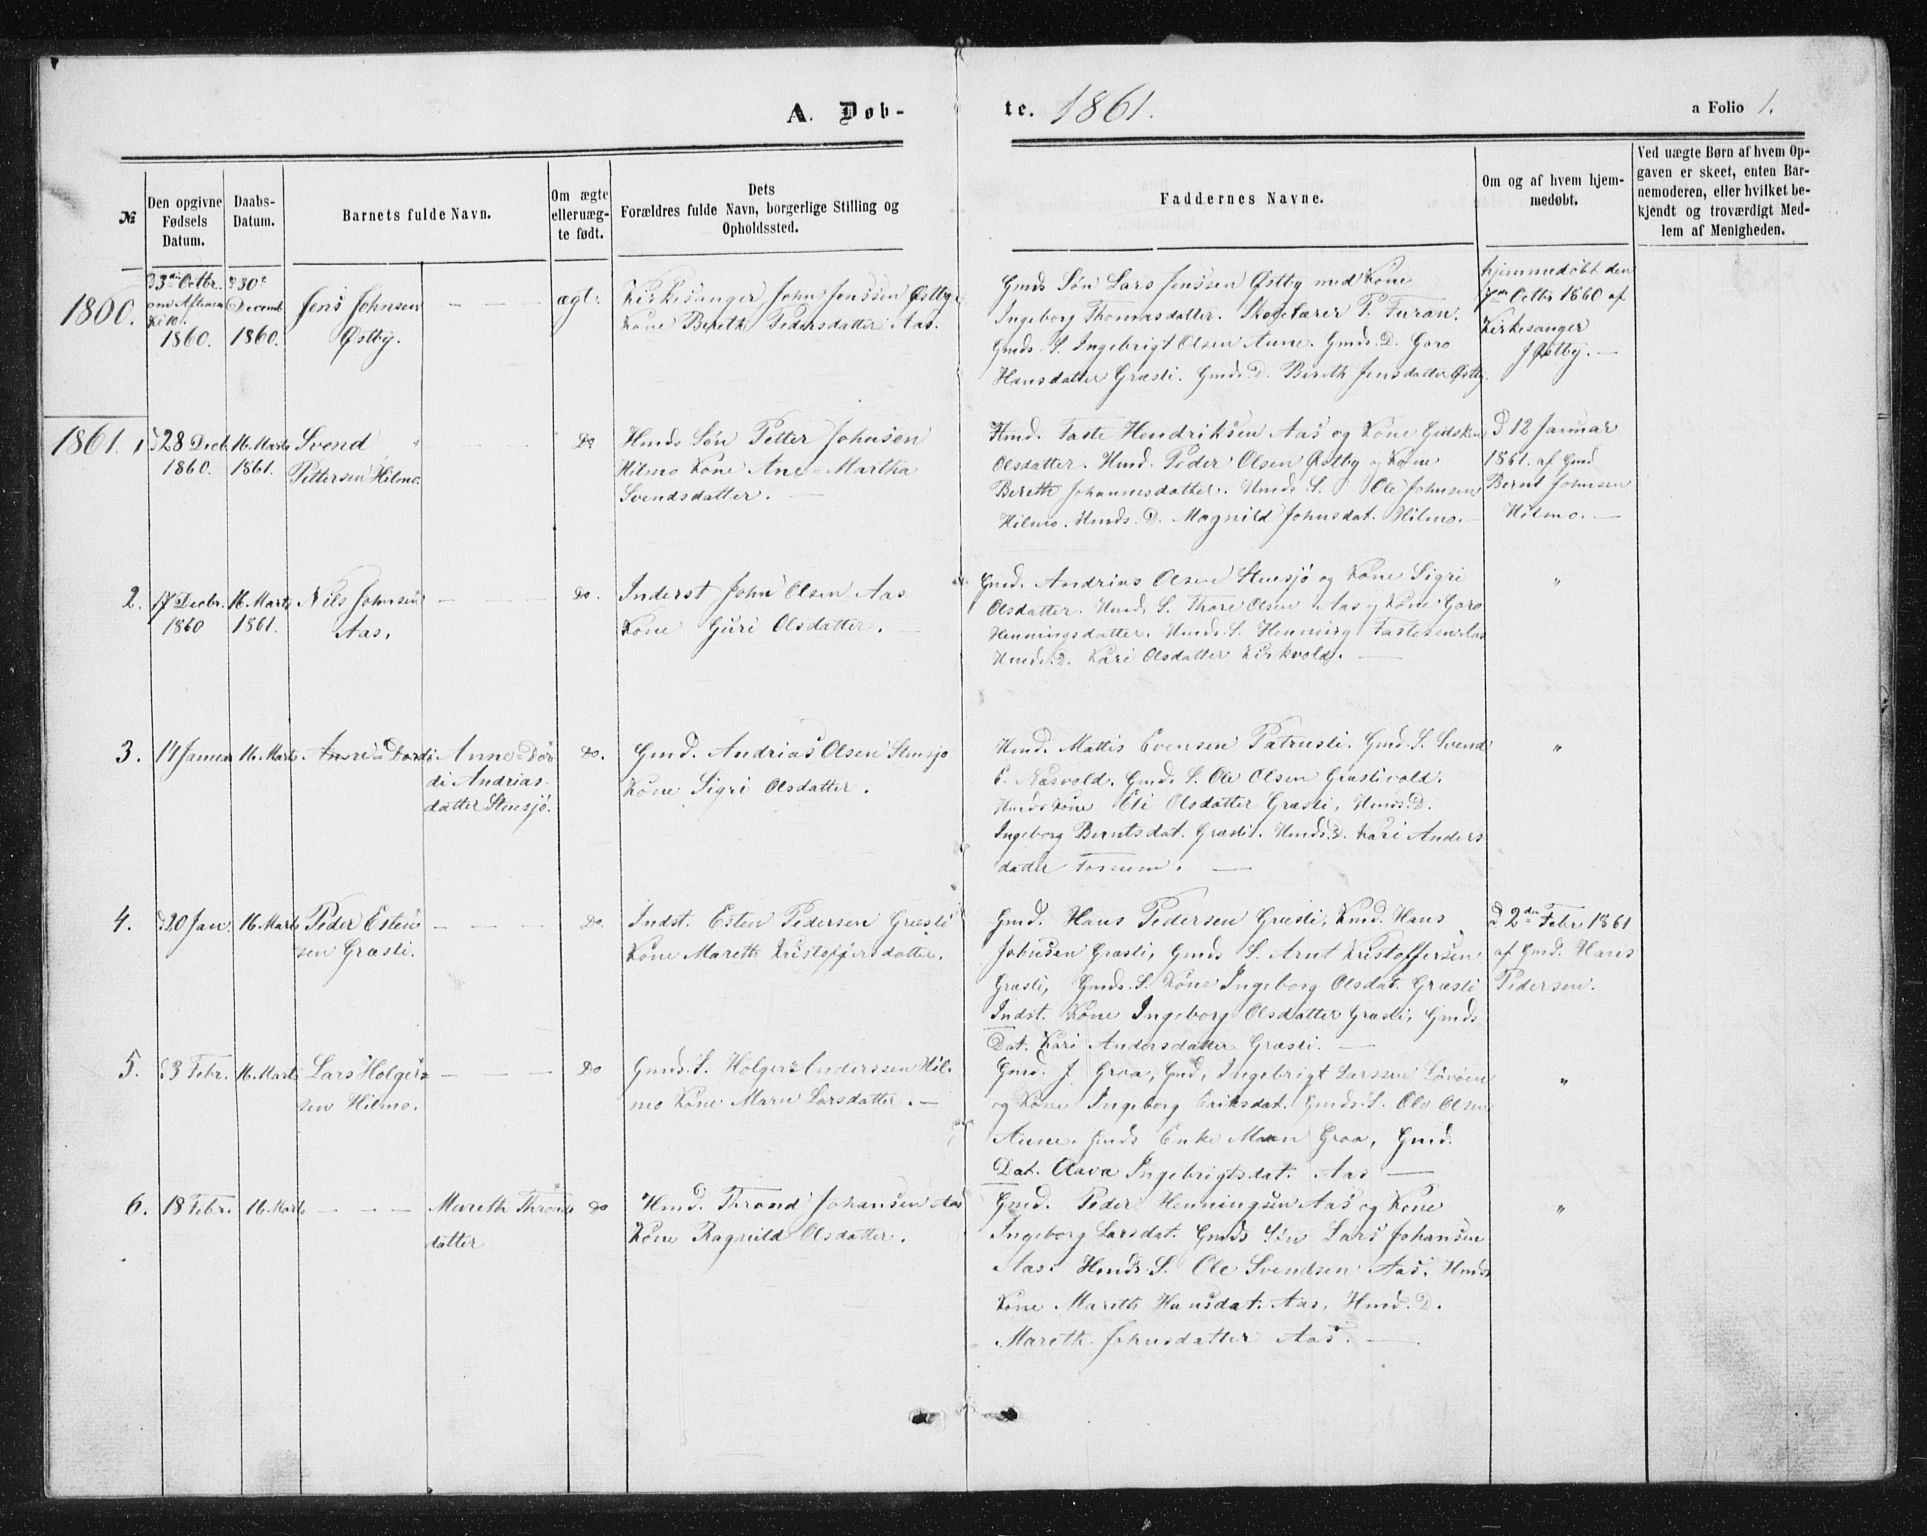 A. Døb-
te. 1861.
a Folio 1.
№
Den opgivne Fødsels Datum.
Daabs-Datum.
Barnets fulde Navn.
Om ægte eller uæg-te født.
Dets
Forældres fulde Navn, borgerlige Stilling og Opholdssted.
Faddernes Navne.
Om og af hvem hjem-medøbt.
Ved uægte Børn af hvem Op-
gaven er skeet, enten Bar-
nemoderen, eller hvilket be-
kjendt og troværdigt Med-
lem af Menigheden.
1860.
3die Octbr.
om Aftenen
Kl 10.
1860.
d 30te
Decemb
1860.
Jens Johnsen
Østby.
ægt.
Kirkesanger John Jenssen Østby
Kone Bereth Pedersdatter Aas.
Gmds Søn Lars Jenssen Østby med Kone
Ingeborg Thomasdatter. Skolelærer P. Furan.
Gmds. S. Ingebrigt Olsen Aune. Gmds. D. Goro
Hansdatter Græsli. Gmds. D. Bereth Jensdatter Østby.
hjemmedøbt den
7de Octbr 1860 af
Kirkesanger
J Østby. —
1861. 1
d 28 Decb
1860.
16. Marts
1861.
Svend
Pettersen Hilmo.
Do
Hmds Søn Petter Johnsen
Hilmo Kone Ane-Martha
Svendsdatter. —
Hmd. Faste Hendriksen Aas og Kone Gidsken
Olsdatter. Hmd. Peder Olsen Østby og Kone
Bereth Johannesdatter. Hmds. S. Ole Johnsen
Hilmo. Hmds. D. Magnild Johnsdat. Hilmo. —
d 12 Januar
1861. af Gmd
Bernt Johnsen
Hilmo. —
2.
17 Decbr.
1860
16 Marts
1861.
Nils Johnsen
Aas.
Do.
Inderst John Olsen Aas
Kone Guri Olsdatter. —
Gmd. Andrias Olsen Stensjø og Kone Sigri
Olsdatter. Hmds. S. Thore Olsen Aas og Kone Goro
Henningsdatter. Hmds. S. Henning Fastesen Aas
Hmds. D. Kari Olsdatter Kirkvold. —
"
3.
14 Januar
16 Marts
Anne-Dordi
Anne-Dor
di Andrias-
datter Stensjø.
Do.
Gmd. Andrias Olsen Stensjø
Kone Sigri Olsdatter.
Hmd. Mattis Evensen Patrusli. Gmd. S. Svend
E. Næsvold. Gmds. S. Ole Olsen Græslivold.
Hmds Kone Eli Olsdatter Græsli, Hmds. D.
Ingeborg Berntsdat. Græsli. Hmds. D. Kari Anders
datter Fossum. —
"
4.
d 20 Jan.
16 Marts
Peder Esten-
sen Græsli.
Do.
Indst. Esten Pedersen Græsli
Kone Mareth Kristoffersdatter.
Gmd. Hans Pedersen Græsli, Kmd. Hans
Johnsen Græsli, Gmds S. Arnt Kristoffersen
Græsli, Gmds. S. Kone Ingeborg Olsdat. Græsli
Indst. Kone Ingeborg Olsdatter Græsli, Gmds
Dat. Kari Andersdatter Græsli. —
d 2den Febr 1861
af Gmd. Hans
Pedersen.
5.
d 3 Febr.
16. Marts
Lars Holger-
sen Hilmo.
Do
Gmds. S. Holger Anderssen Hil-
mo Kone Maru Larsdatter. —
Gmd. J. Groa, Gmd, Ingebrigt Larssen Løvøen
og Kone Ingeborg Eriksdat. Gmds. S. Ole Olsen
Aune. Gmds Enke Maren Groa, Gmd.
Dat. Olava Ingebrigtsdat. Aas —
"
6.
18 Febr.
16. Marts
Mareth Thronds
datter
Do
Hmd. Thrond Johansen Aas
Kone Ragnild Olsdatter.
Gmd. Peder Henningsen Aas og Kone
Ingeborg Larsdat. Gmds Søn Lars Johansen
Aas. Hmds. S. Ole Svendsen Aas. Hmds
Kone Mareth Hansdat. Aas, Hmd. D.
Mareth Johnsdatter Aas. —
"